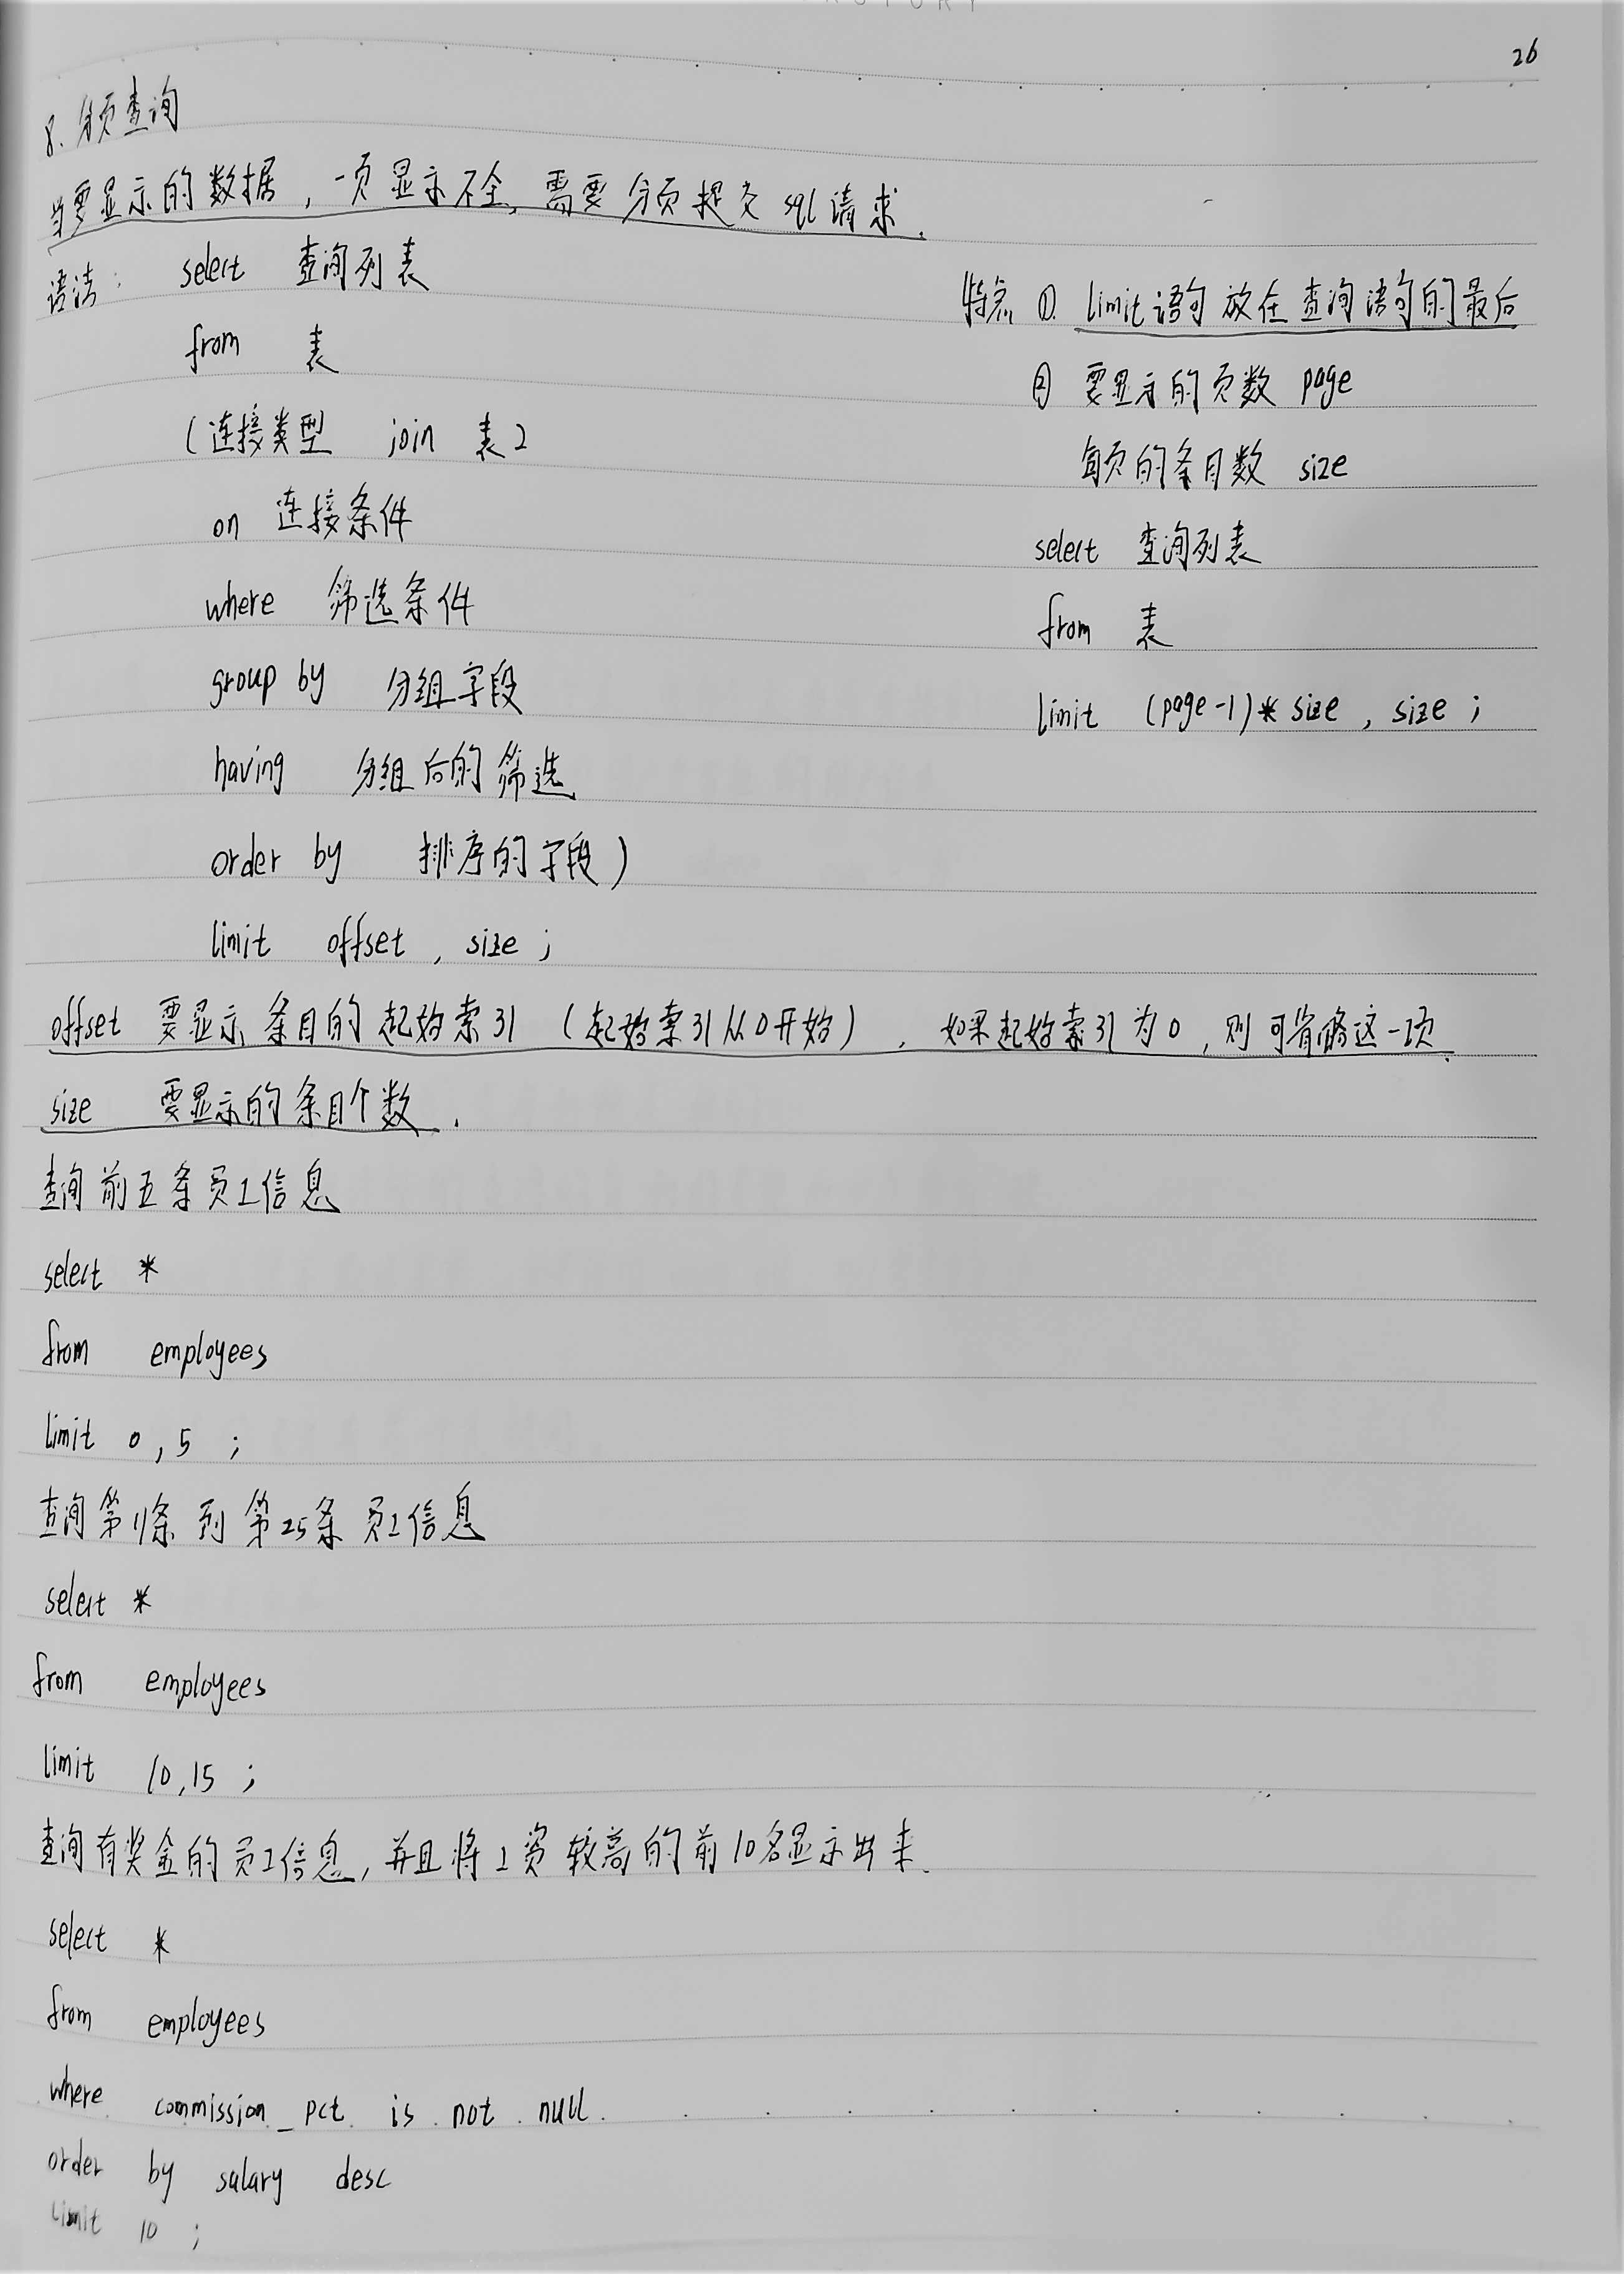 26
8. 分页查询
当要显示的数据，一页显示不全，需要分页提交sql请求.
语法： select 查询列表
from 表
(连接类型 join 表2
on 连接条件
where 筛选条件
group by 分组字段
having 分组后的筛选
order by 排序的字段)
limit offset , size ;
特点 ① limit语句放在查询语句的最后
② 要显示的页数 page
每页的条目数 size
select 查询列表
from 表
limit (page-1)* size , size ;
offset 要显示条目的起始索引 (起始索引从0开始) . 如果起始索引为0 , 则可省略这一项.
size 要显示的条目个数 .
查询前五条员工信息
select *
from employees
limit 0 , 5 ;
查询第11条到第25条员工信息
select *
from employees
limit 10,15 ;
查询有奖金的员工信息, 并且将工资较高的前10名显示出来.
select *
from employees
where commission_pct is not null
order by salary desc
limit 10 ;